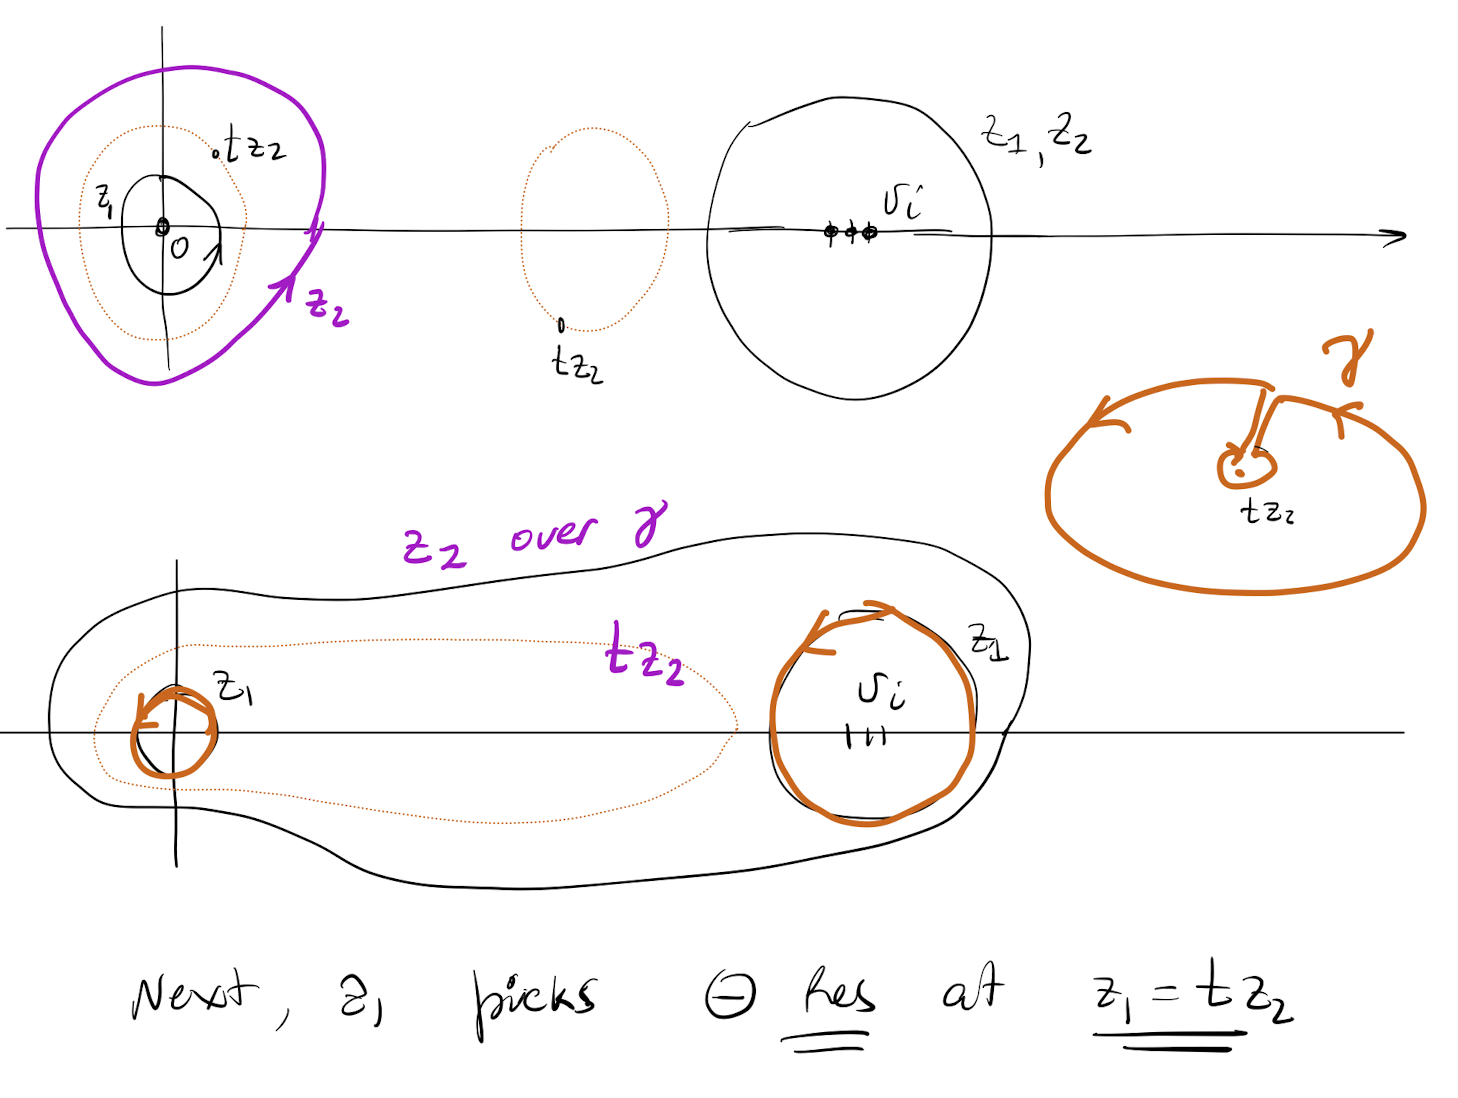 tz₂
z₁, z₂
z₁
vᵢ
0
z₂
tz₂
γ
tz₂
z₂ over γ
tz₂
z₁
z₁
vᵢ
Next, z₁ picks ⊖ Res at z₁ = tz₂